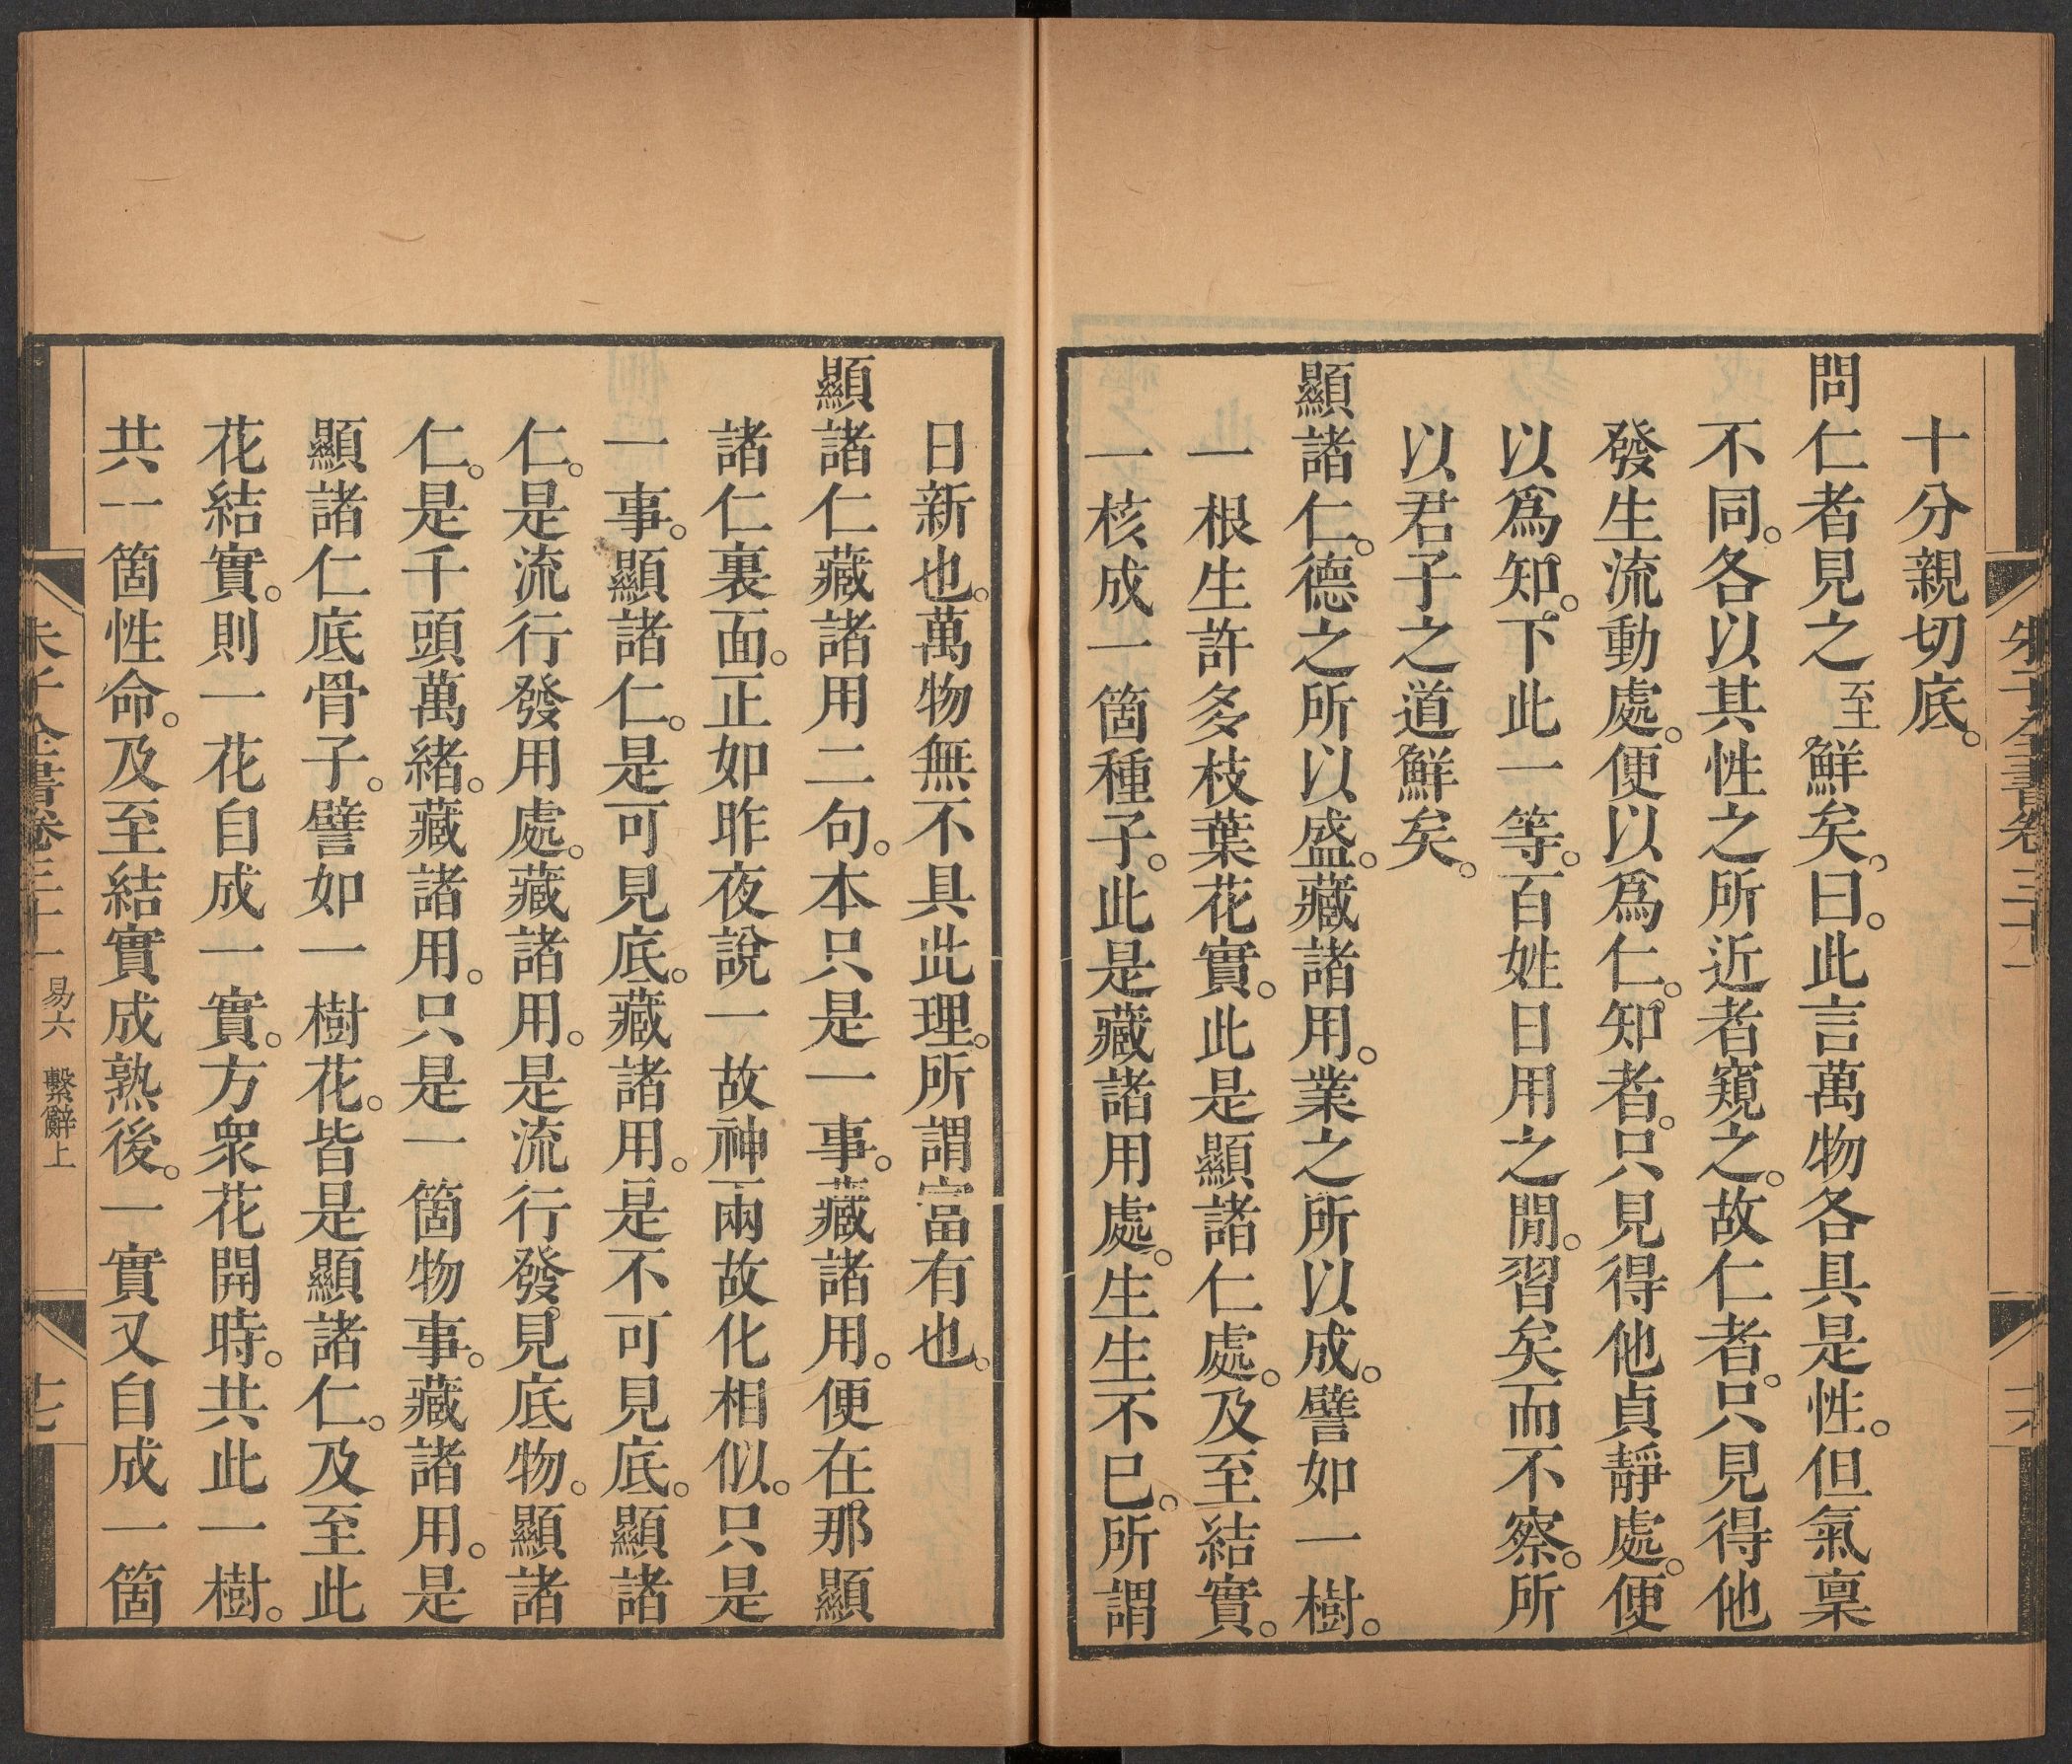 十分親切底。
問仁者見之至鮮矣。曰。此言萬物各具是性。但氣稟
不同。各以其性之所近者窺之。故仁者。只見得他
發生流動處。便以爲仁。知者。只見得他貞靜處。便
以爲知。下此一等。百姓日用之閒。習矣而不察。所
以君子之道鮮矣。
顯諸仁。德之所以盛。藏諸用。業之所以成。譬如一樹。
一根生許多枝葉花實。此是顯諸仁處。及至結實。
一核成一箇種子。此是藏諸用處。生生不已。所謂
日新也。萬物無不具此理。所謂富有也。
顯諸仁藏諸用二句。本只是一事。藏諸用。便在那顯
諸仁裏面。正如昨夜說一故神兩故化相似。只是
一事。顯諸仁。是可見底。藏諸用。是不可見底。顯諸
仁。是流行發用處。藏諸用。是流行發見底物。顯諸
仁。是千頭萬緒。藏諸用。只是一箇物事。藏諸用。是
顯諸仁底骨子。譬如一樹花。皆是顯諸仁。及至此
花結實。則一花自成一實。方衆花開時。共此一樹。
共一箇性命。及至結實成熟後。一實又自成一箇
朱子全書卷三十一 易六 繫辭上 十七